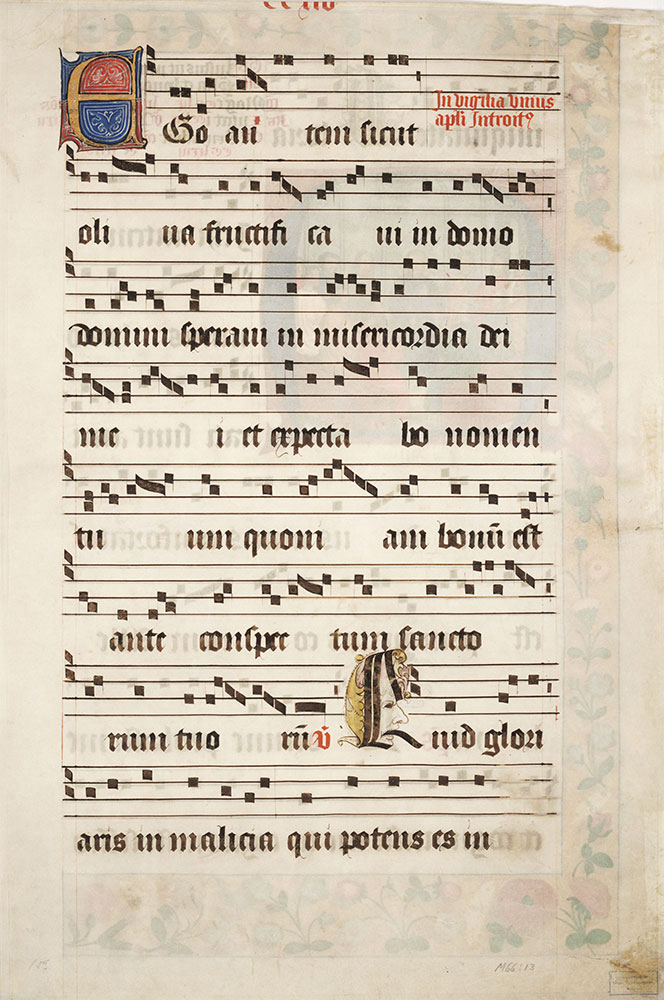 In vigilia vnius
apli Introit9
EGo autem sicut
oliua fructificaui in domo
domini speraui in misericordia dei
mei et expectabo nomen
tuum quoniam bonū est
ante conspectum sancto
rum tuorū ℣ Quid glori
aris in malicia qui potens es in
M66:13